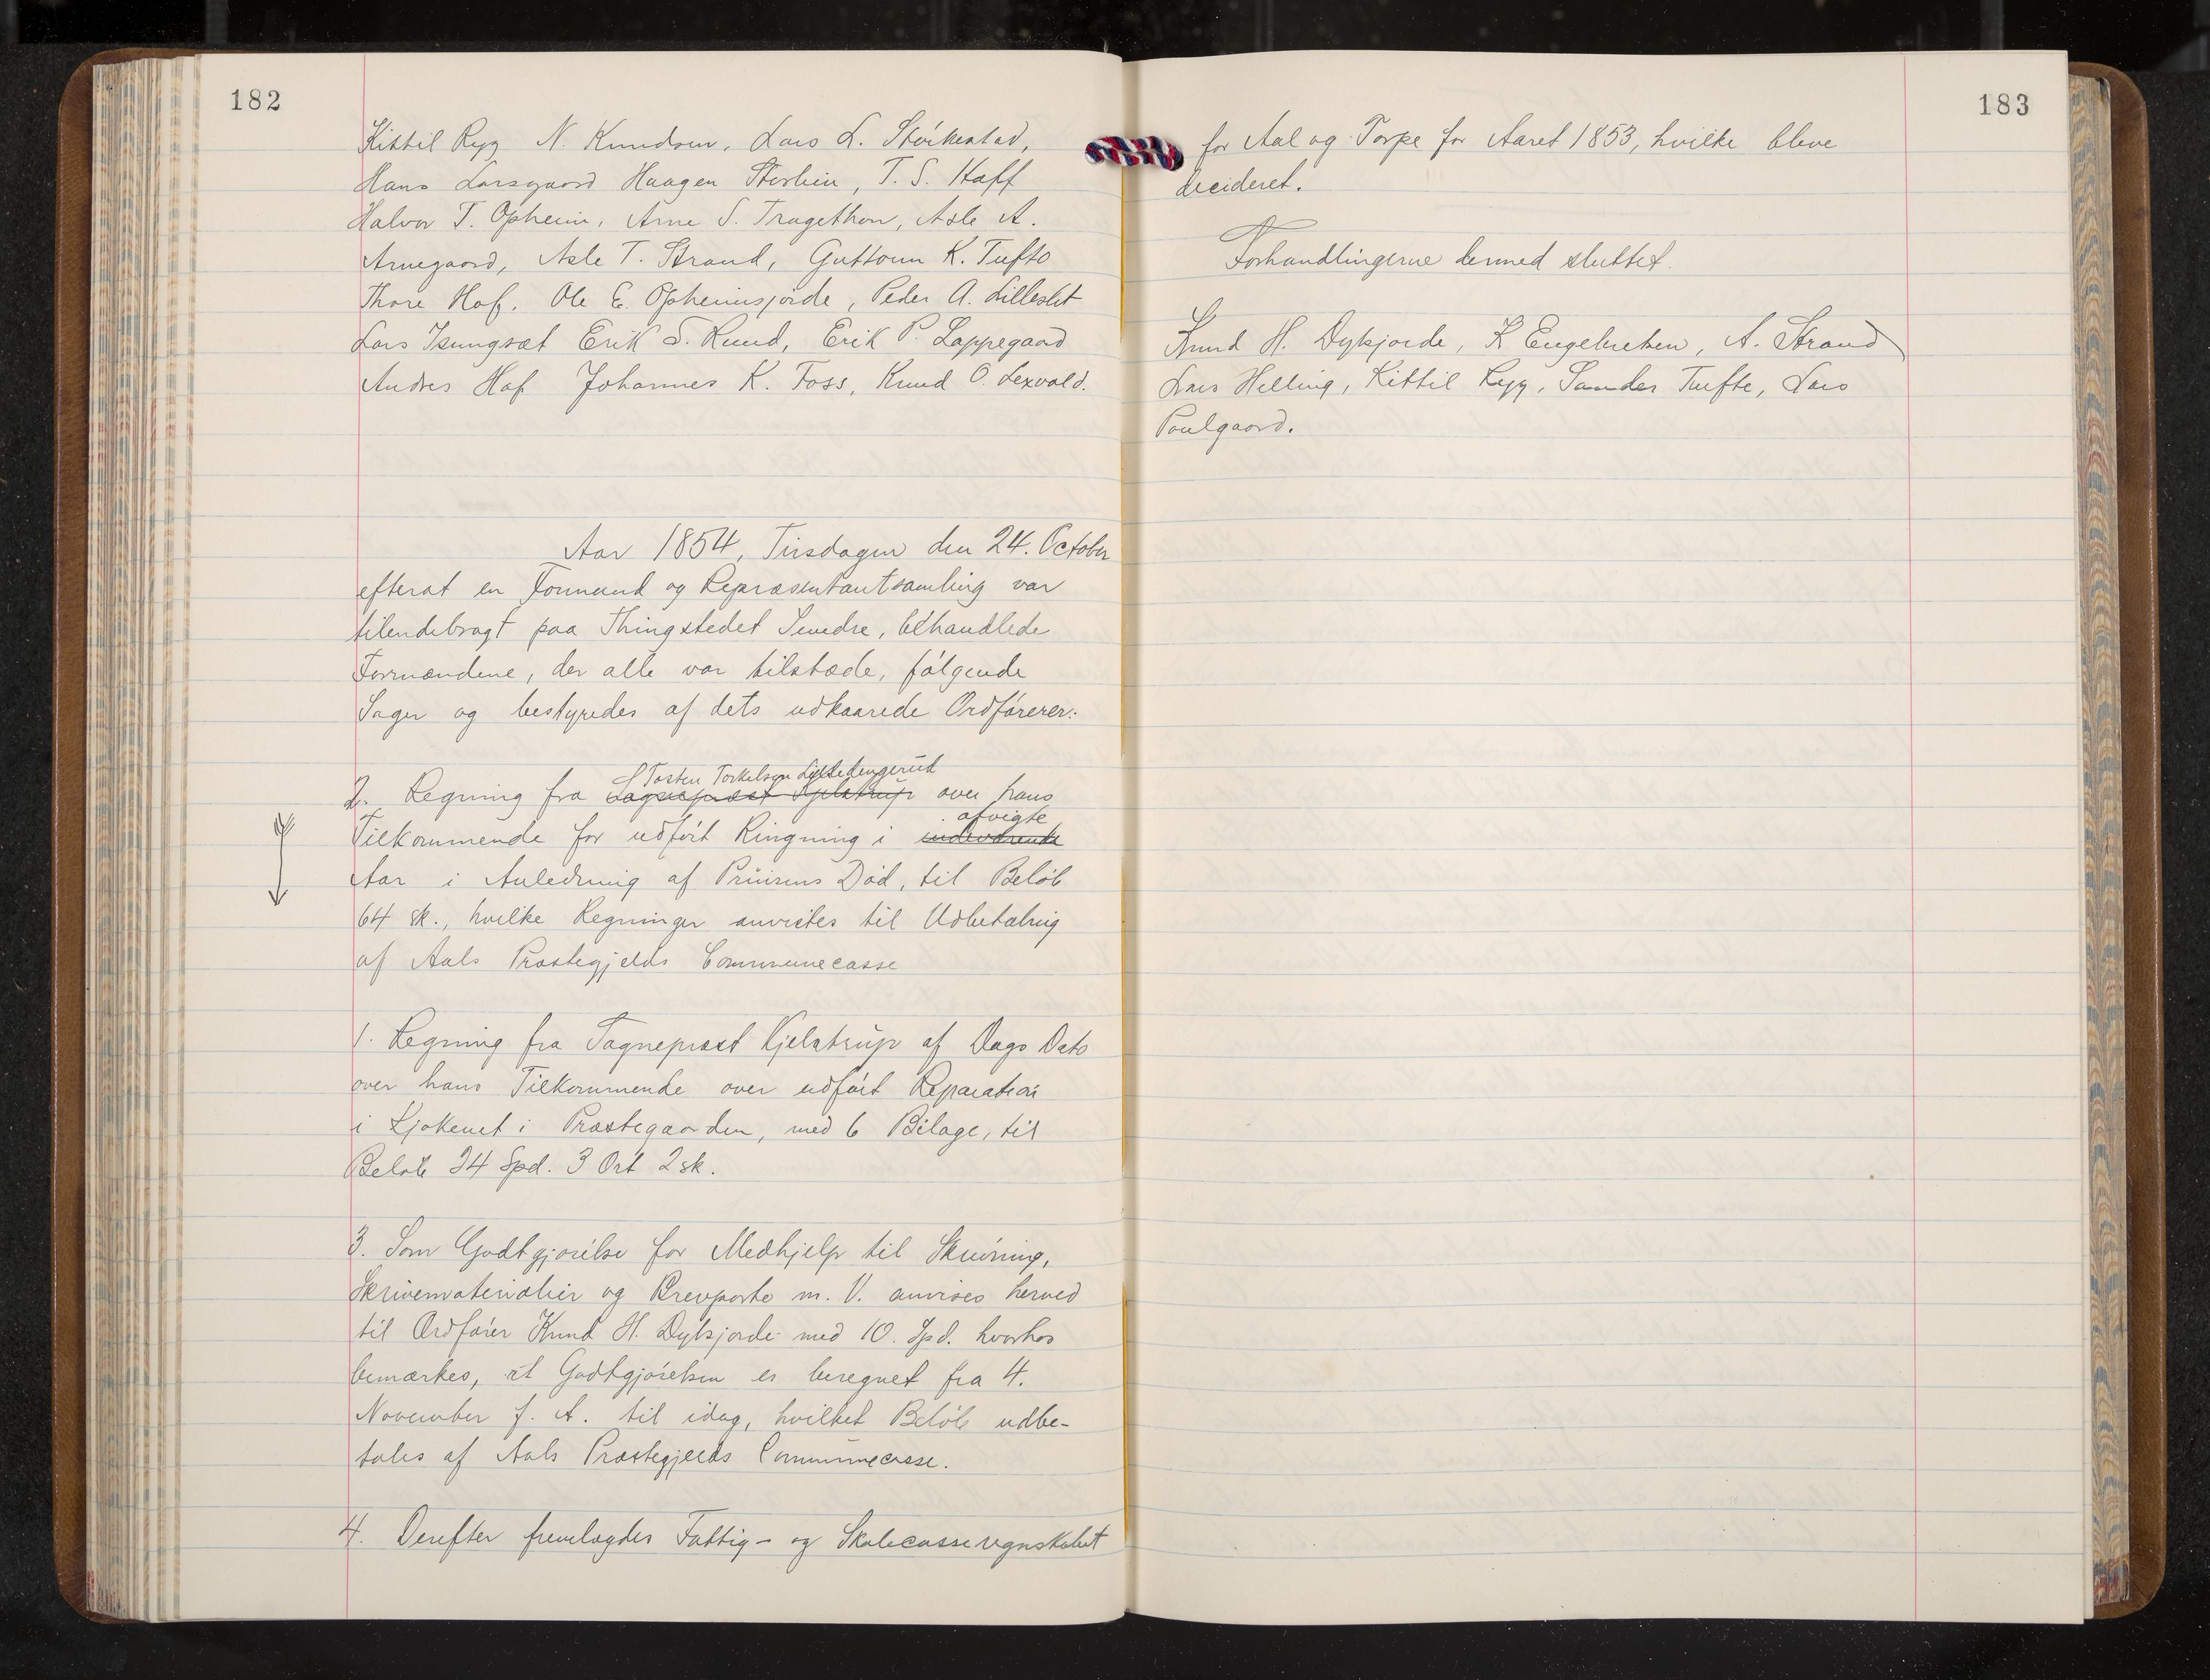 182
Kittil Rygg N. Knudsen, Lars L. Stórkestad,
Hans Larsgaard Haagen Skerhein, T. S. Haff
Halvor T. Opheim, Arne S. Tragethon, Asle A.
Arnegaard, Asle T. Strand, Guttorm K. Tufto
Thore Hof. Ole E. Opheimsjorde, Peder A. Lilleslet
Lars Erik S. Ruud, Erik P. Lappegaard
Andres Hof Johannes K. Foss, Knud O. Lexvold.
Aar 1854, Tirsdagen den 24. October
efterat en Formand og Repræsentantsamling var
tilendebragt paa Thingstedet Sundre, behandlede
Formændene, der alle var tilstæde, fólgende
Sager og bestyredes af dets udkaarede Ordfórerer:
Tosten Torkelsen
2. Regning fra Sognepræst Kjelstrup over hans
afvigte
Tilkommende for udfórt Ringning i indeværende
Aar i Anledning af Prinsens Dód, til Belób
64 sk., hvilke Regninger anvistes til Udbetaling
af Aals Præstegjelds Communecasse
1. Regning fra Sognepræst Kjelstrup af Dags Dato
over hans Tilkommende over udfórt Reparation
i Kjøkenet i Præstegaarden, med 6 Bilage, til
Belób 24 Spd. 3 Ort 2 sk.
3. Som Godtgjórelse for Medhjelp til Skrivning,
Skrivematerialier og Brevporto m. V. anvises herved
til Ordfórer Knud H. Dykjorde med 10. Spd. hvorhos
bemærkes, at Godtgjórelsen er beregnet fra 4.
November f. A. til idag, hvilket Belób udbe-
tales af Aals Præstegjelds Communecasse.
4. Derefter fremlagdes Fattig- og Skolecasseregnskabet
183
for Aal og Torpe for Aaret 1853, hvilke bleve
decideret.
Forhandlingerne dermed sluttet.
Knud H. Dykjorde, K Engebretsen, A. Strand
Lars Helling, Kittil Rygg, Sander Tufte, Lars
Poulgaard.